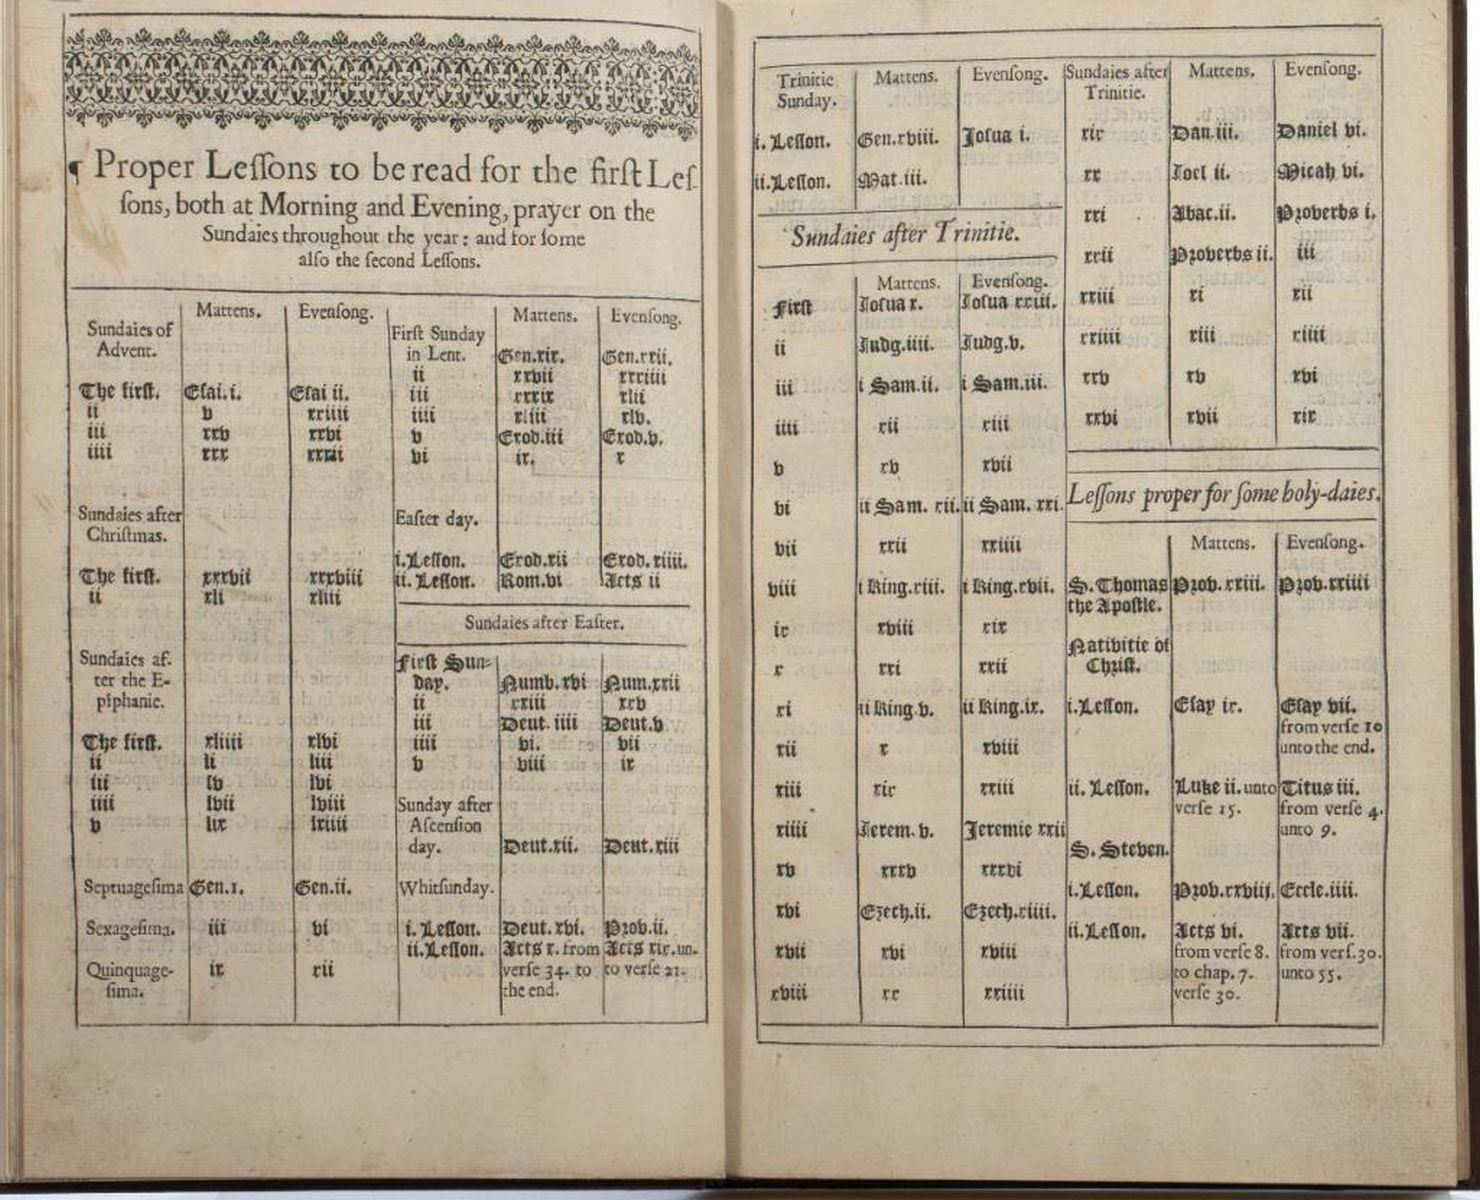 ¶ Proper Lessons to be read for the first Les-
sons, both at Morning and Evening, prayer on the
Sundaies throughout the year: and for some
also the second Lessons.
Mattens. Evensong.
Sundaies of
Advent.
The first. Esai. i. Esai ii.
ii v xxiiii
iii xxv xxvi
iiii xxx xxxii
Sundaies after
Christmas.
The first. xxxvii xxxviii
ii xli xliii
Sundaies af-
ter the E-
piphanie.
The first. xliiii xlvi
ii li liii
iii lv lvi
iiii lvii lviii
v lix lxiiii
Septuagesima Gen.1. Gen.ii.
Sexagesima. iii vi
Quinquage- ix xii
sima.
Mattens. Evensong.
First Sunday
in Lent. Gen.xix. Gen.xxii.
ii xxvii xxxiiii
iii xxxix xlii
iiii xliii xlv.
v Exod.iii Exod.v.
vi ix. x
Easter day.
i. Lesson. Exod.xii Exod.xiiii.
ii. Lesson. Rom.vi Acts ii
Sundaies after Easter.
First Sun-
day. Numb.xvi Num.xxii
ii xxiii xxv
iii Deut. iiii Deut.v
iiii vi. vii
v viii ix
Sunday after
Ascension
day. Deut.xii. Deut.xiii
Whitsunday.
i. Lesson. Deut.xvi. Prov.ii.
ii. Lesson. Acts x. from Acts xix. un-
verse 34. to to verse 21.
the end.
Trinitie Mattens. Evensong.
Sunday.
i. Lesson. Gen.xviii. Josua i.
ii. Lesson. Mat.iii.
Sundaies after Trinitie.
Mattens. Evensong.
First Josua x. Josua xxiii.
ii Judg.iiii. Judg.v.
iii i Sam.ii. i Sam.iii.
iiii xii xiii
v xv xvii
vi ii Sam. xii. ii Sam. xxi.
vii xxii xxiiii
viii i King.xiii. i King.xvii.
ix xviii xix
x xxi xxii
xi ii King.v. ii King.ix.
xii x xviii
xiii xix xxiii
xiiii Jerem.v. Jeremie xxii
xv xxxv xxxvi
xvi Ezech.ii. Ezech.xiiii.
xvii xvi xviii
xviii xx xxiiii
Sundaies after Mattens. Evensong.
Trinitie.
xix Dan.iii. Daniel vi.
xx Joel ii. Micah vi.
xxi Abac.ii. Proverbs i.
xxii Proverbs ii. iii
xxiii xi xii
xxiiii xiii xiiii
xxv xv xvi
xxvi xvii xix
Lessons proper for some holy-daies.
Mattens. Evensong.
S. Thomas Prov.xxiii. Prov.xxiiii
the Apostle.
Nativitie of
Christ.
i. Lesson. Esay ix. Esay vii.
from verse 10
unto the end.
ii. Lesson. Luke ii. unto Titus iii.
verse 15. from verse 4.
unto 9.
S. Steven.
i. Lesson. Prov.xxviii. Eccle.iiii.
ii. Lesson. Acts vi. Acts vii.
from verse 8. from vers.30.
to chap. 7. unto 55.
verse 30.